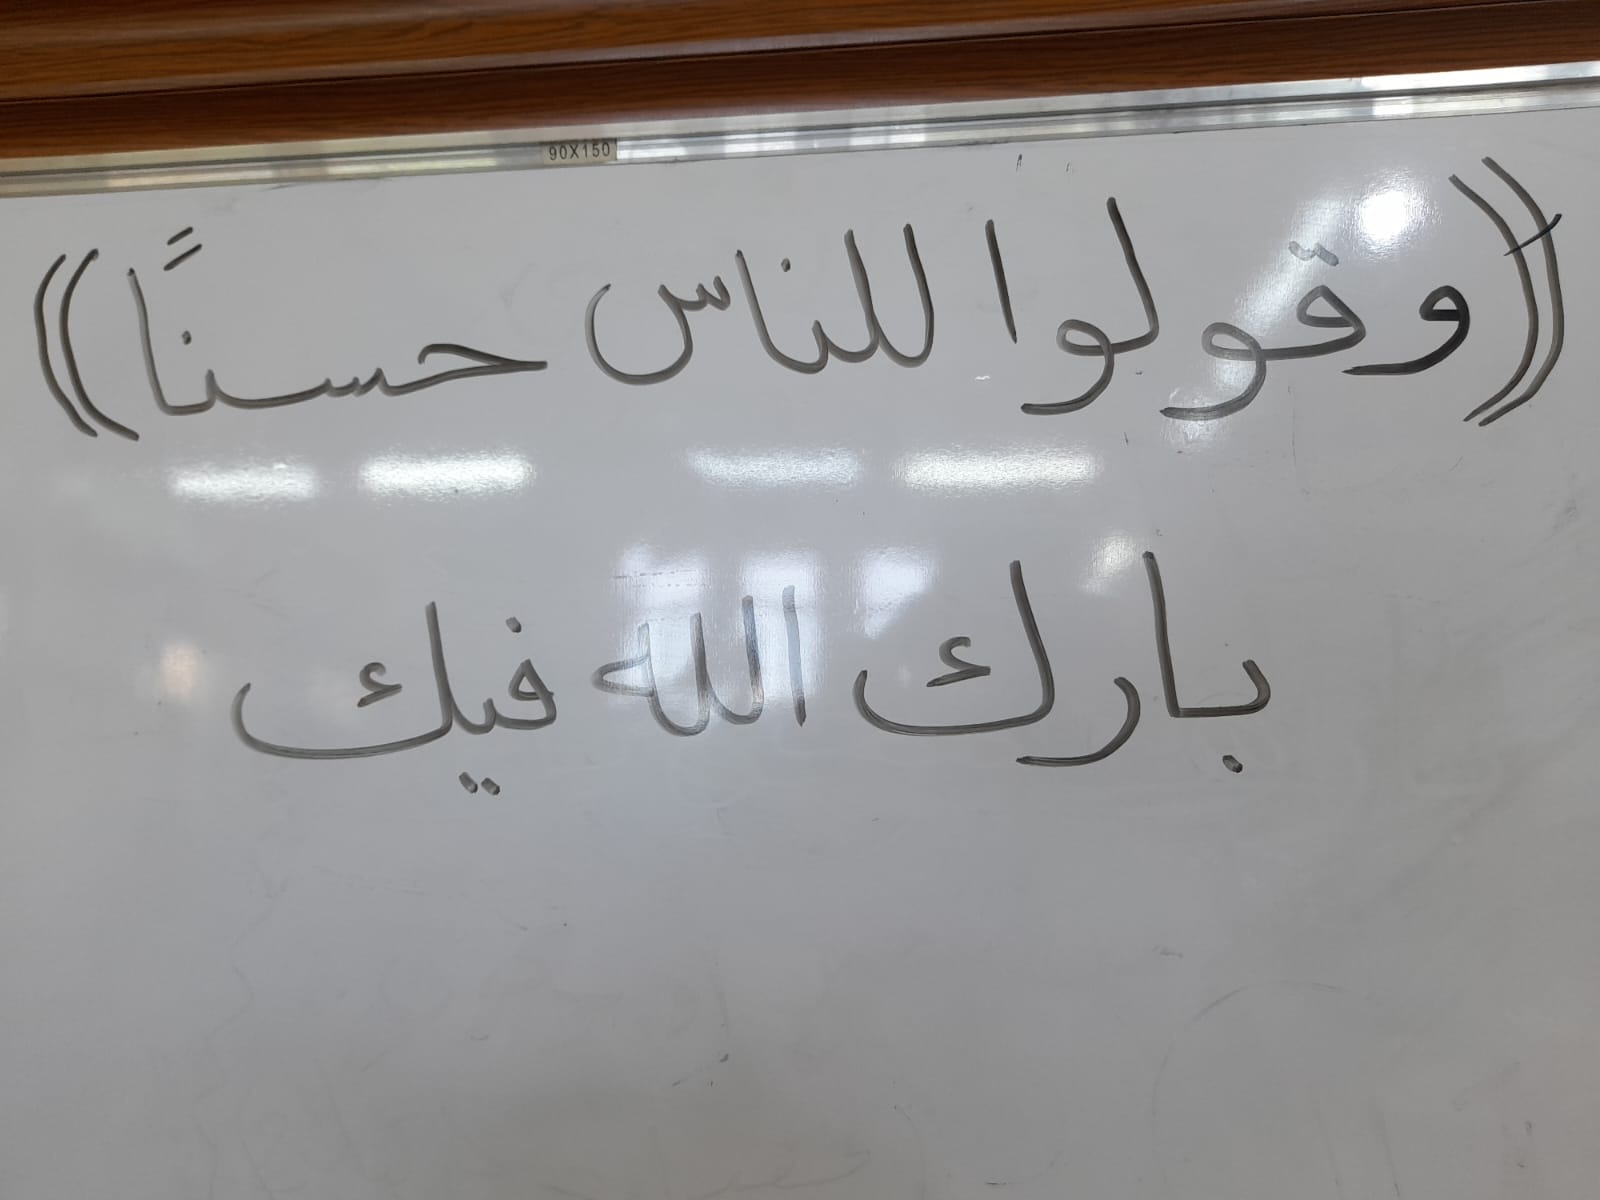 90X150
((وقولوا للناس حسنًا))
بارك الله فيك